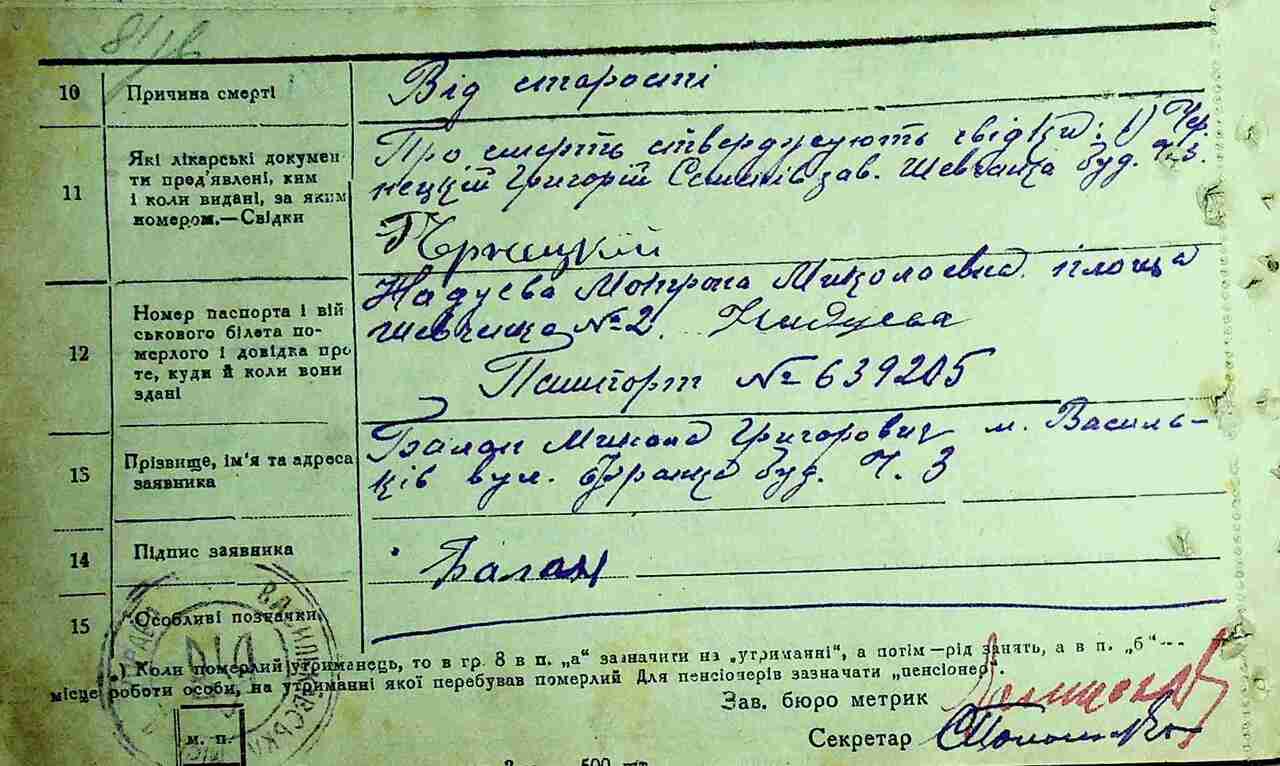 81/16
10 Причина смерті Від старости
11 Які лікарські докумен
ти пред'явлені, ким
і коли видані, за яким
номером.—Свідки
Про смерть стверджують свідки: 1) Чер.
нецкій Григорій зав. Шевченка буд. Ч. 3.
Чернецкій
12 Номер паспорта і вій
ськового білета по-
мерлого і довідка про
те, куди й коли вони
здані
Надуєва Мотрона Миколаєвна площа
Шевченка №2. Надуєва
Пашпорт № 639205
13 Прізвище, ім'я та адреса
заявника
Балан Микола Григорович м. Василь-
ків вул. Франка буд. Ч. 3
14 Підпис заявника Балан
15 Особливі позначки
.) Коли померлий утриманець, то в гр. 8 в п. „а“ зазначити на „утриманні“, а потім—рід занять, а в п. „б“—
місце роботи особи, на утриманні якої перебував померлий Для пенсіонерів зазначати „пенсіонер“.
Зав. бюро метрик
Секретар
м. п.